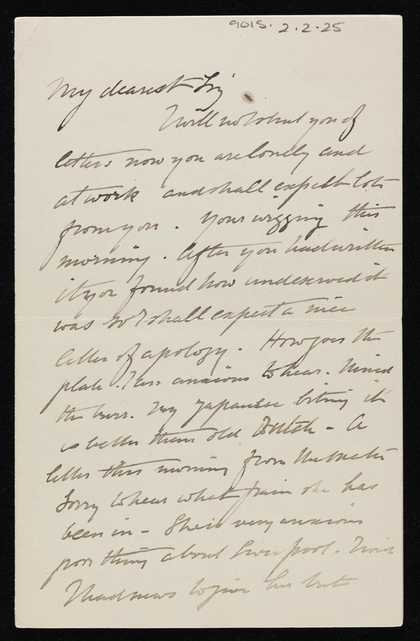 9015. 2-2-25
My dearest
I will not shut you of
letters now you are lonely and
at work and shall expect lots
from you. Your wigging this
morning. After you had written
it you found how undeserved it
was so I shall expect a nice
letter of apology. How goes the
plate. I am anxious to hear. Mind
the Japanese biting it
is better than old Dutch - A
letter this morning from
Sorry to hear what pain she has
been in - She is very anxious
poor thing about Liverpool.
I had news to give her but